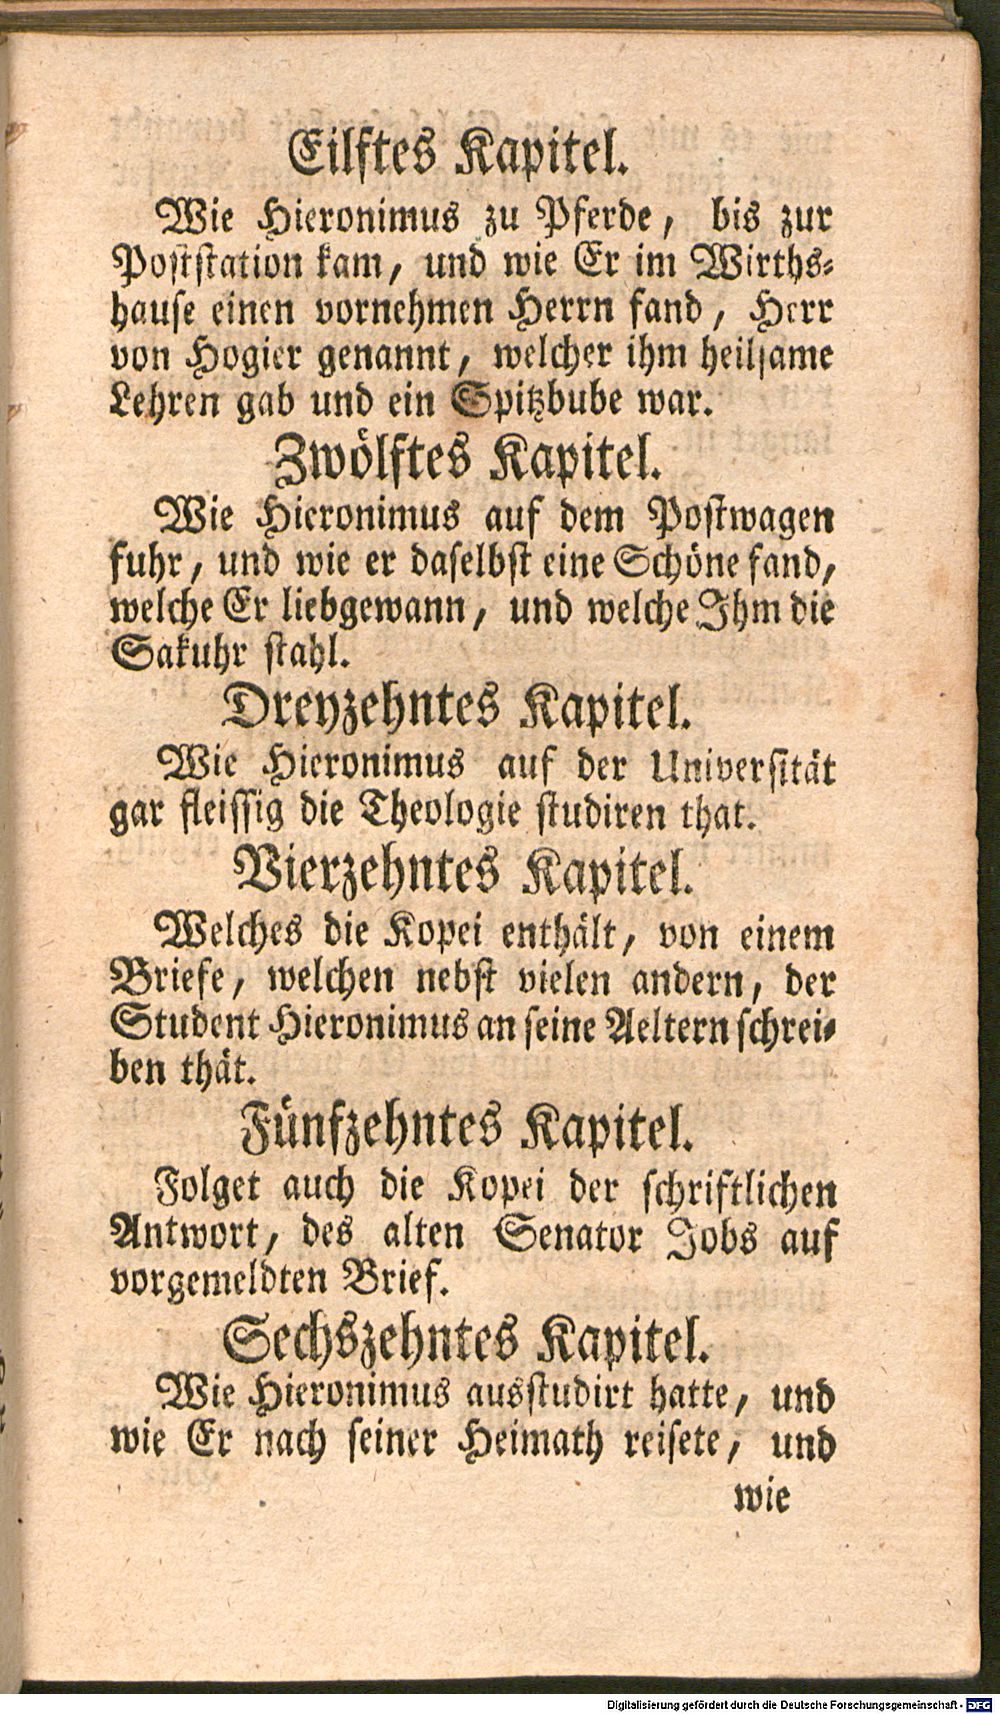 Eilftes Kapitel.
Wie Hieronimus zu Pferde, bis zur
Poststation kam, und wie Er im Wirths-
hause einen vornehmen Herrn fand, Herr
von Hogier genannt, welcher ihm heilsame
Lehren gab und ein Spitzbube war.
Zwölftes Kapitel.
Wie Hieronimus auf dem Postwagen
fuhr, und wie er daselbst eine Schöne fand,
welche Er liebgewann, und welche Ihm die
Sakuhr stahl.
Dreyzehntes Kapitel.
Wie Hieronimus auf der Universität
gar fleissig die Theologie studiren that.
Vierzehntes Kapitel.
Welches die Kopei enthält, von einem
Briefe, welchen nebst vielen andern, der
Student Hieronimus an seine Aeltern schrei-
ben thät.
Fünfzehntes Kapitel.
Folget auch die Kopei der schriftlichen
Antwort, des alten Senator Jobs auf
vorgemeldten Brief.
Sechszehntes Kapitel.
Wie Hieronimus ausstudirt hatte, und
wie Er nach seiner Heimath reisete, und
wie
Digitalisierung gefördert durch die Deutsche Forschungsgemeinschaft - DFG